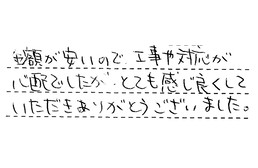 金額が安いので、工事や対応が
心配でしたが、とても感じ良くして
いただきありがとうございました。